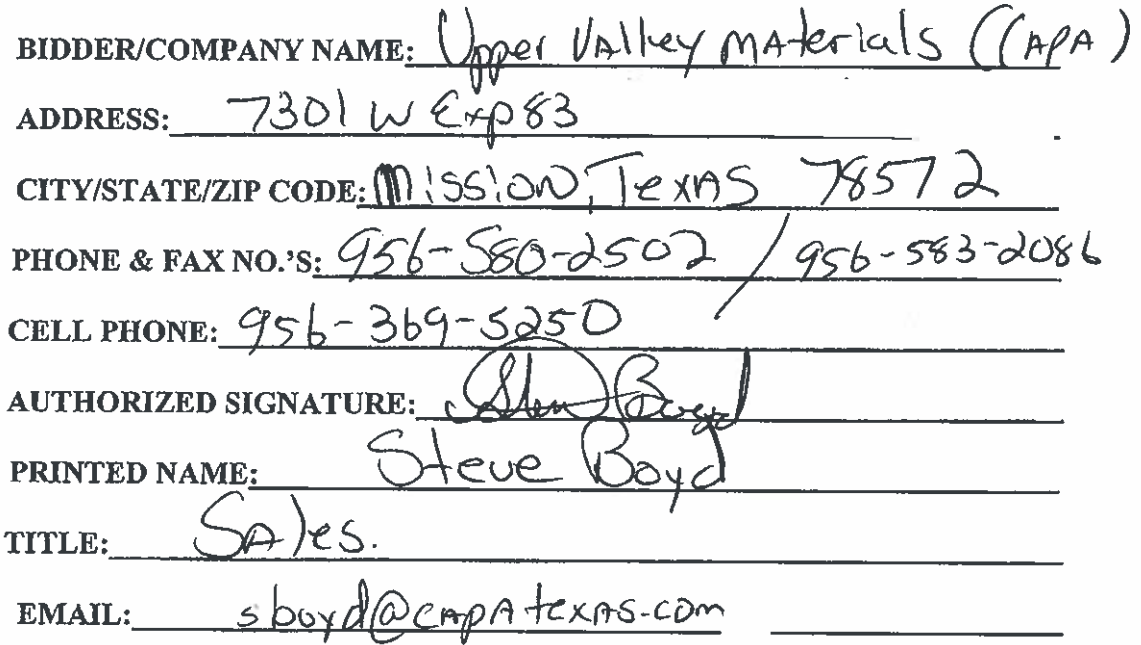 BIDDER/COMPANY NAME: Upper VAlley MAterials (CAPA)
ADDRESS: 7301 W Exp 83
CITY/STATE/ZIP CODE: Mission, TexAS 78572
PHONE & FAX NO.'S: 956-580-2502 / 956-583-2086
CELL PHONE: 956-369-5250
AUTHORIZED SIGNATURE: Steve Boyd
PRINTED NAME: Steve Boyd
TITLE: SAles.
EMAIL: sboyd@cApAtexAs.com